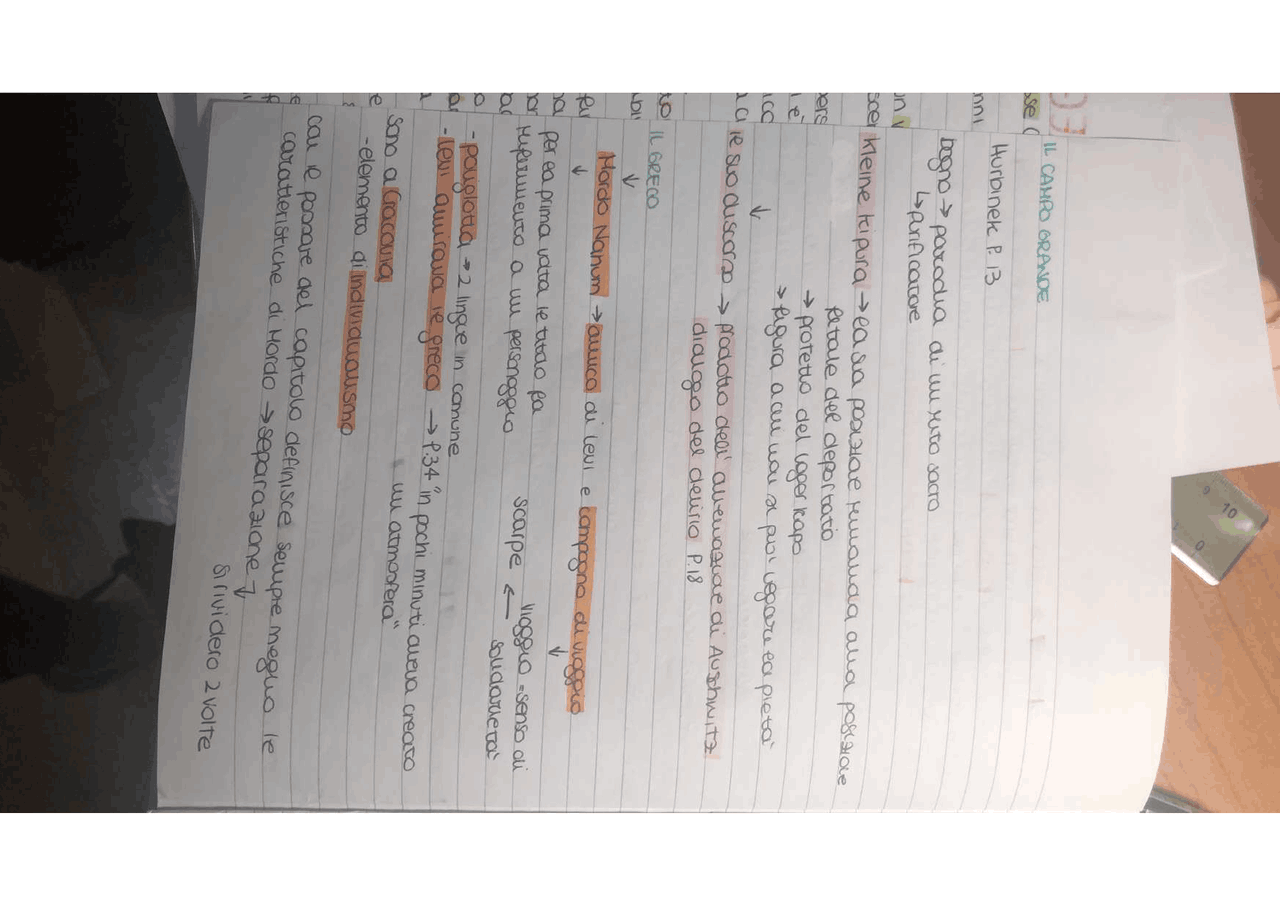 IL CAMPO GRANDE
Hurbinek P. 13
bagno → parodia di un rito sacro
↳ purificazione
Kleine Kiepura → la sua posizione rimanda alla posizione
fetale del deportato
→ protetto del lager kapo
→ figura a cui non si può negare la pietà
↓
le suo discorso → prodotto dell' alienazione di Aushwitz
dialogo del delirio P.18
IL GRECO
↓
Mordo Nahum → amico di levi e compagno di viaggio
↓ ↓
per la prima volta le titolo fa viaggio = senso di
riferimento a un personaggio scarpe ← solidarietà
- poliglotta → 2 lingue in comune
- levi ammirava le greco → P.34 "in pochi minuti aveva creato
un atmosfera"
sono a Cracovia
- elemento di individualismo
con le passare del capitolo definisce sempre meglio le
caratteristiche di Mordo → separazione ↓
si rividero 2 volte